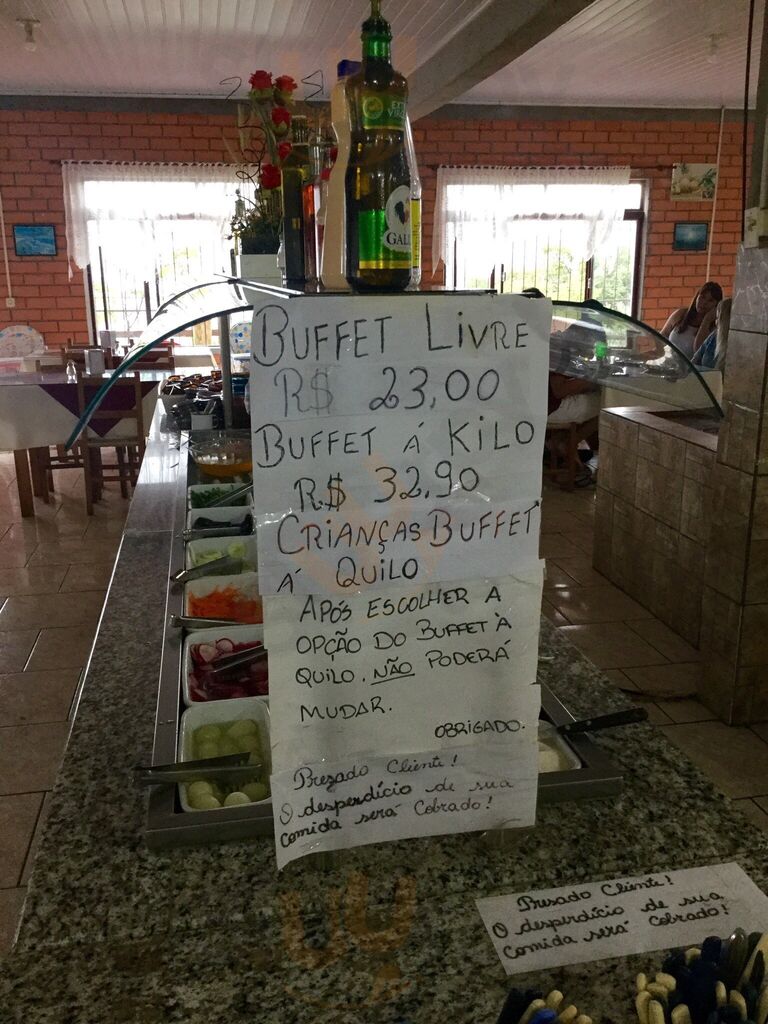 EXTRA
VIRGEM
GALL
BUFFET LIVRE
R$ 23,00
BUFFET Á KILO
R$ 32,90
CRIANÇAS BUFFET
Á QUILO
APÓS ESCOLHER A
OPÇÃO DO BUFFET À
QUILO, NÃO PODERÁ
MUDAR.
OBRIGADO.
Prezado Cliente!
O desperdício de sua
comida será Cobrado!
Prezado Cliente!
O desperdício de sua
Comida será Cobrado!